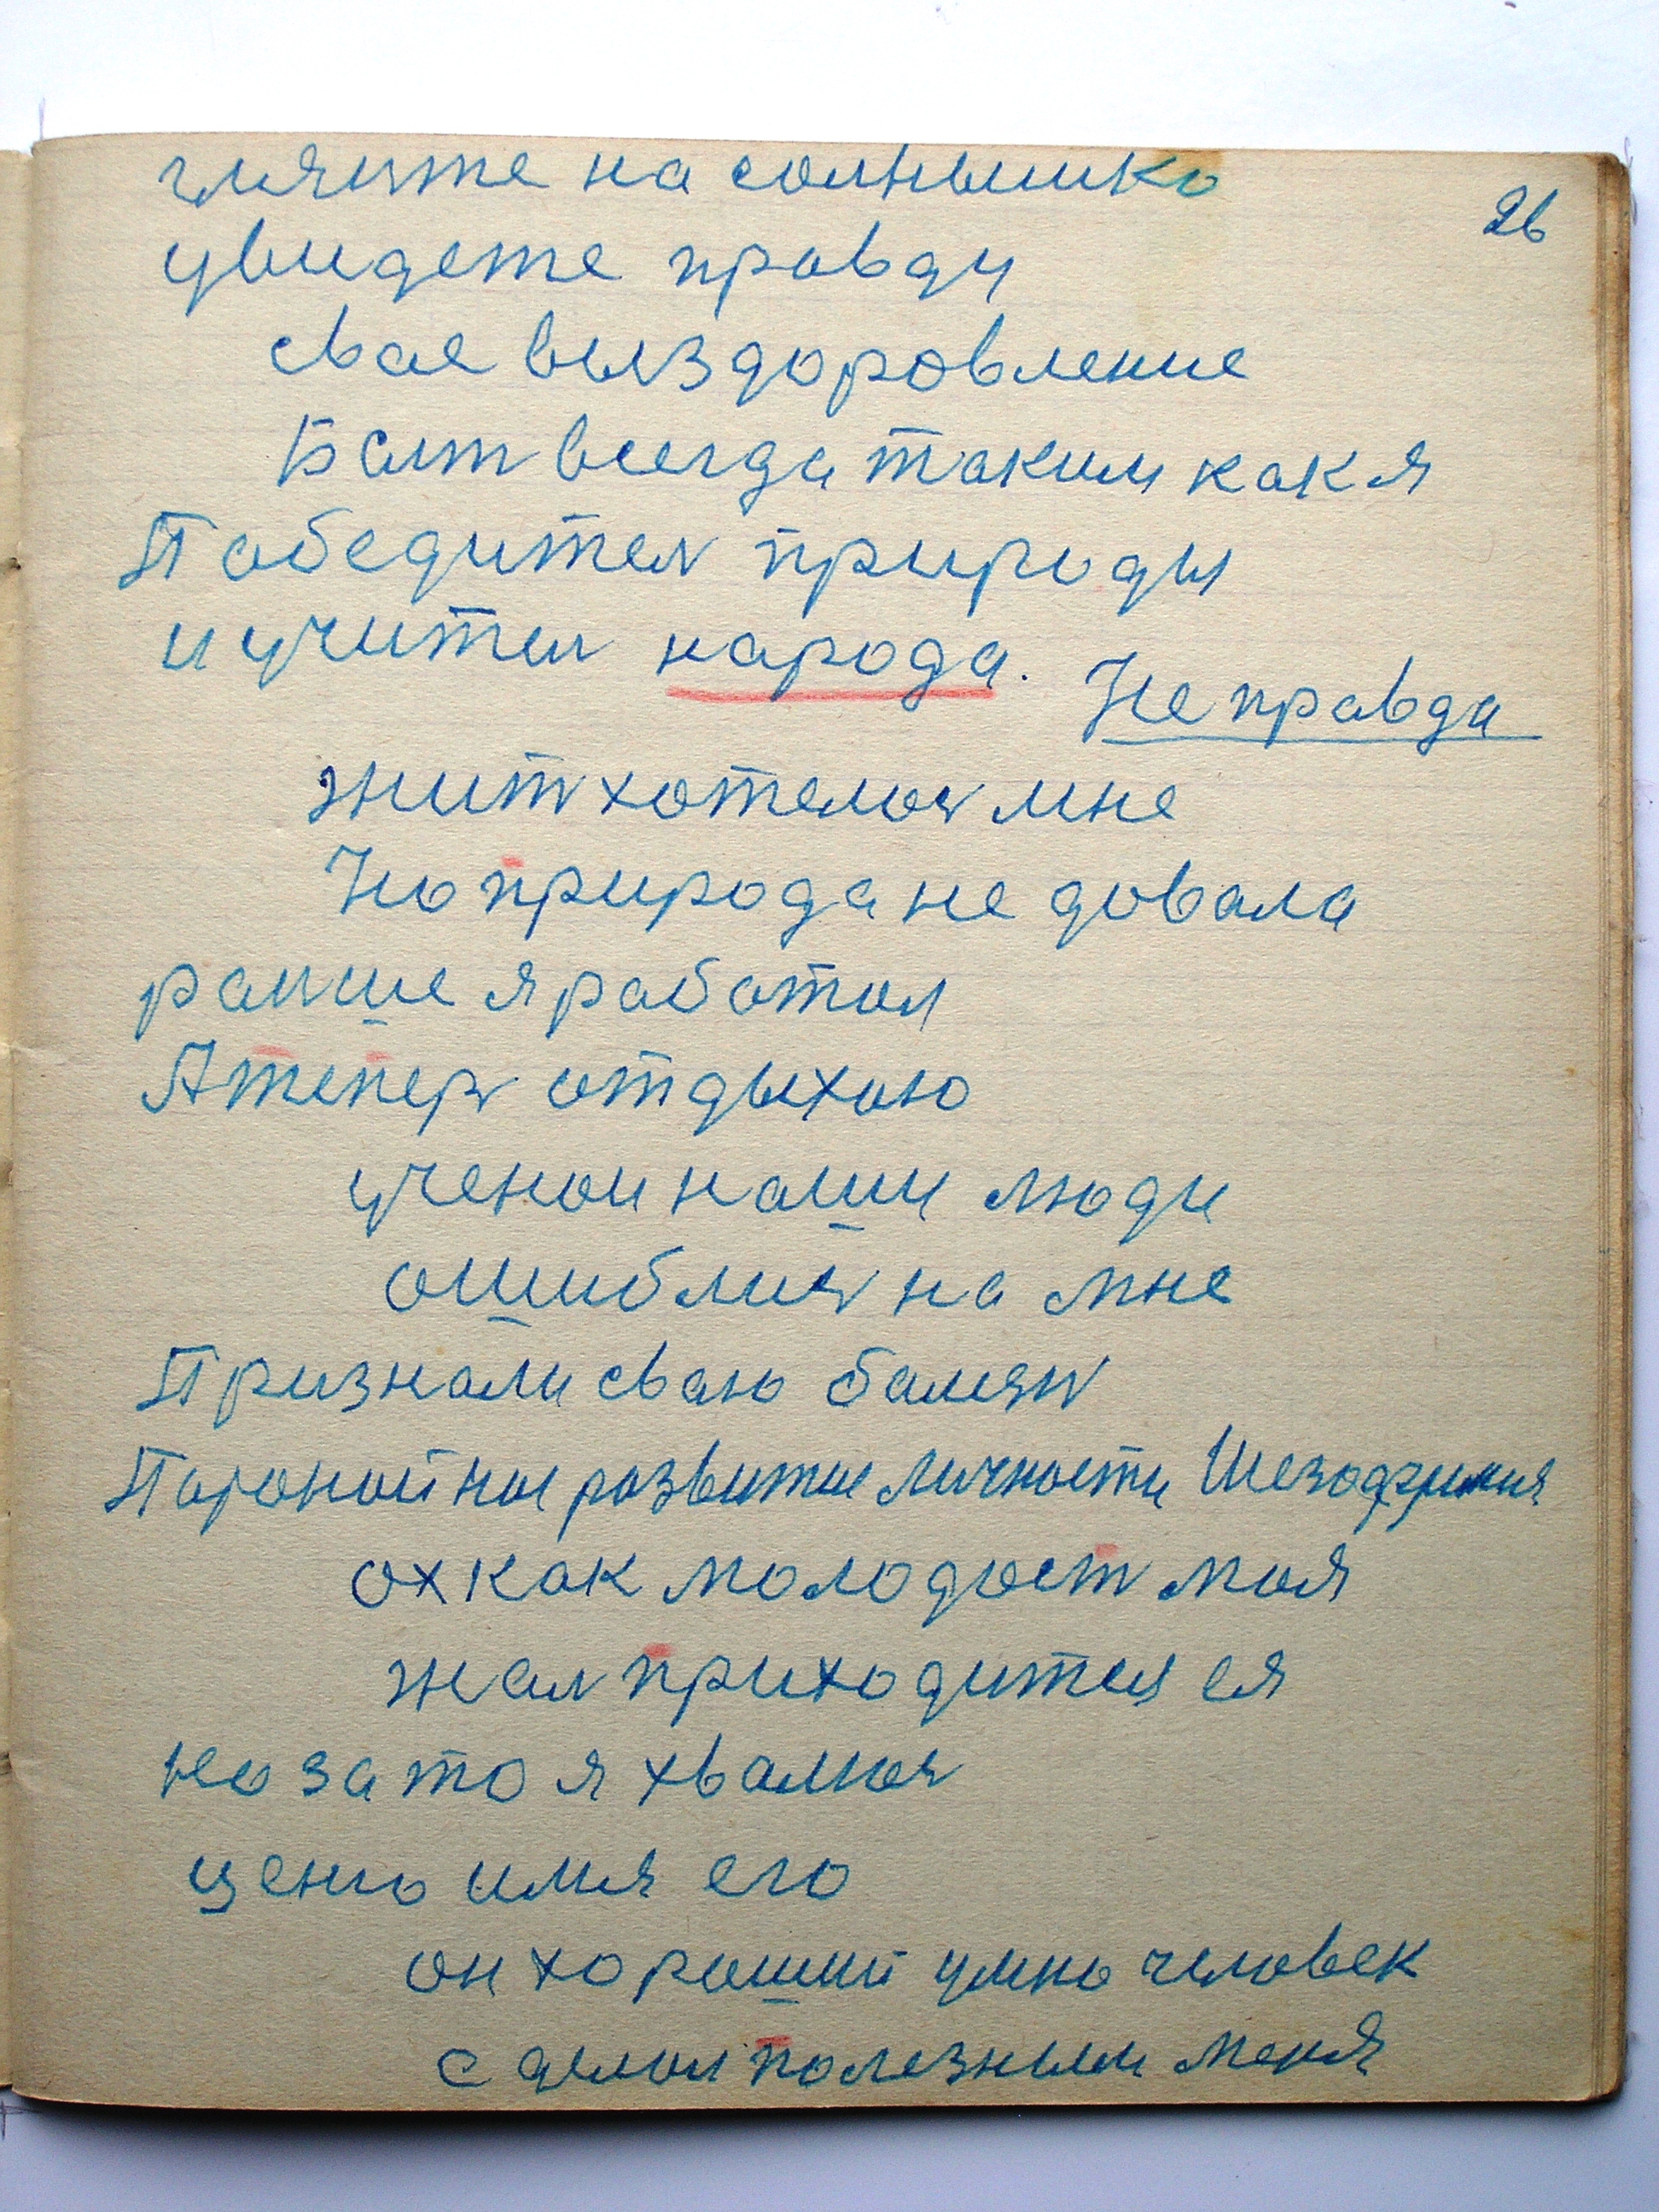 гляните на солнышко
26
увидете правду
свае выздоровление
Балт всегда таким как я
Победител природы
и учител народа.
Не правда
жит хотелос мне
Но природа не довала
ранше я работал
А тепер отдыхаю
ученои наши люди
ошиблис на мне
Признали сваю
Параноиное развитие личности Шезофрения
ох как молодост моя
жал приходится ея
но за то я хвалюс
ценю имя его
он хороший умно человек
с делал полезным меня